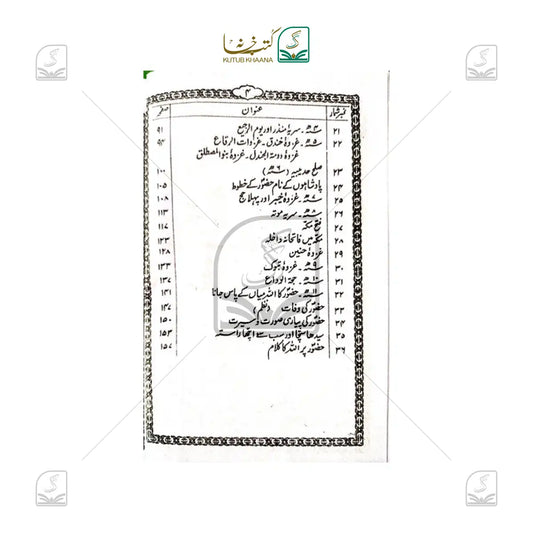 کتب خانہ
KUTUB KHAANA
۴
نمبر شمار عنوان صفحہ
۲۱ ۴ھ - سریۂ منذر اور یوم الرجیع ۹۱
۲۲ ۵ھ - غزوۂ خندق - غزوات الرقاع ۹۴
غزوۂ دومتہ الجندل - غزوۂ بنو المصطلق
۲۳ صلح حدیبیہ (۶ھ) ۱۰۰
۲۴ بادشاہوں کے نام حضورؐ کے خطوط ۱۰۵
۲۵ ۷ھ - غزوۂ خیبر اور پہلا حج ۱۰۸
۲۶ ۸ھ - سریہ موتہ ۱۱۳
۲۷ فتح مکّہ ۱۱۷
۲۸ مکّہ میں فاتحانہ داخلہ ۱۲۳
۲۹ غزوۂ حنین ۱۲۸
۳۰ ۹ھ - غزوۂ تبوک ۱۳۳
۳۱ ۱۰ھ - حجۃ الوداع ۱۳۷
۳۲ ۱۱ھ - حضورؐ کا اللہ میاں کے پاس جانا ۱۴۱
۳۳ حضورؐ کی وفات (نظم) ۱۴۷
۳۴ حضورؐ کی پیاری صورت و سیرت ۱۵۰
۳۵ سیدھا سچا اور سب سے اچھا راستہ ۱۵۳
۳۶ حضورؐ پر اللہ کا کلام ۱۵۷